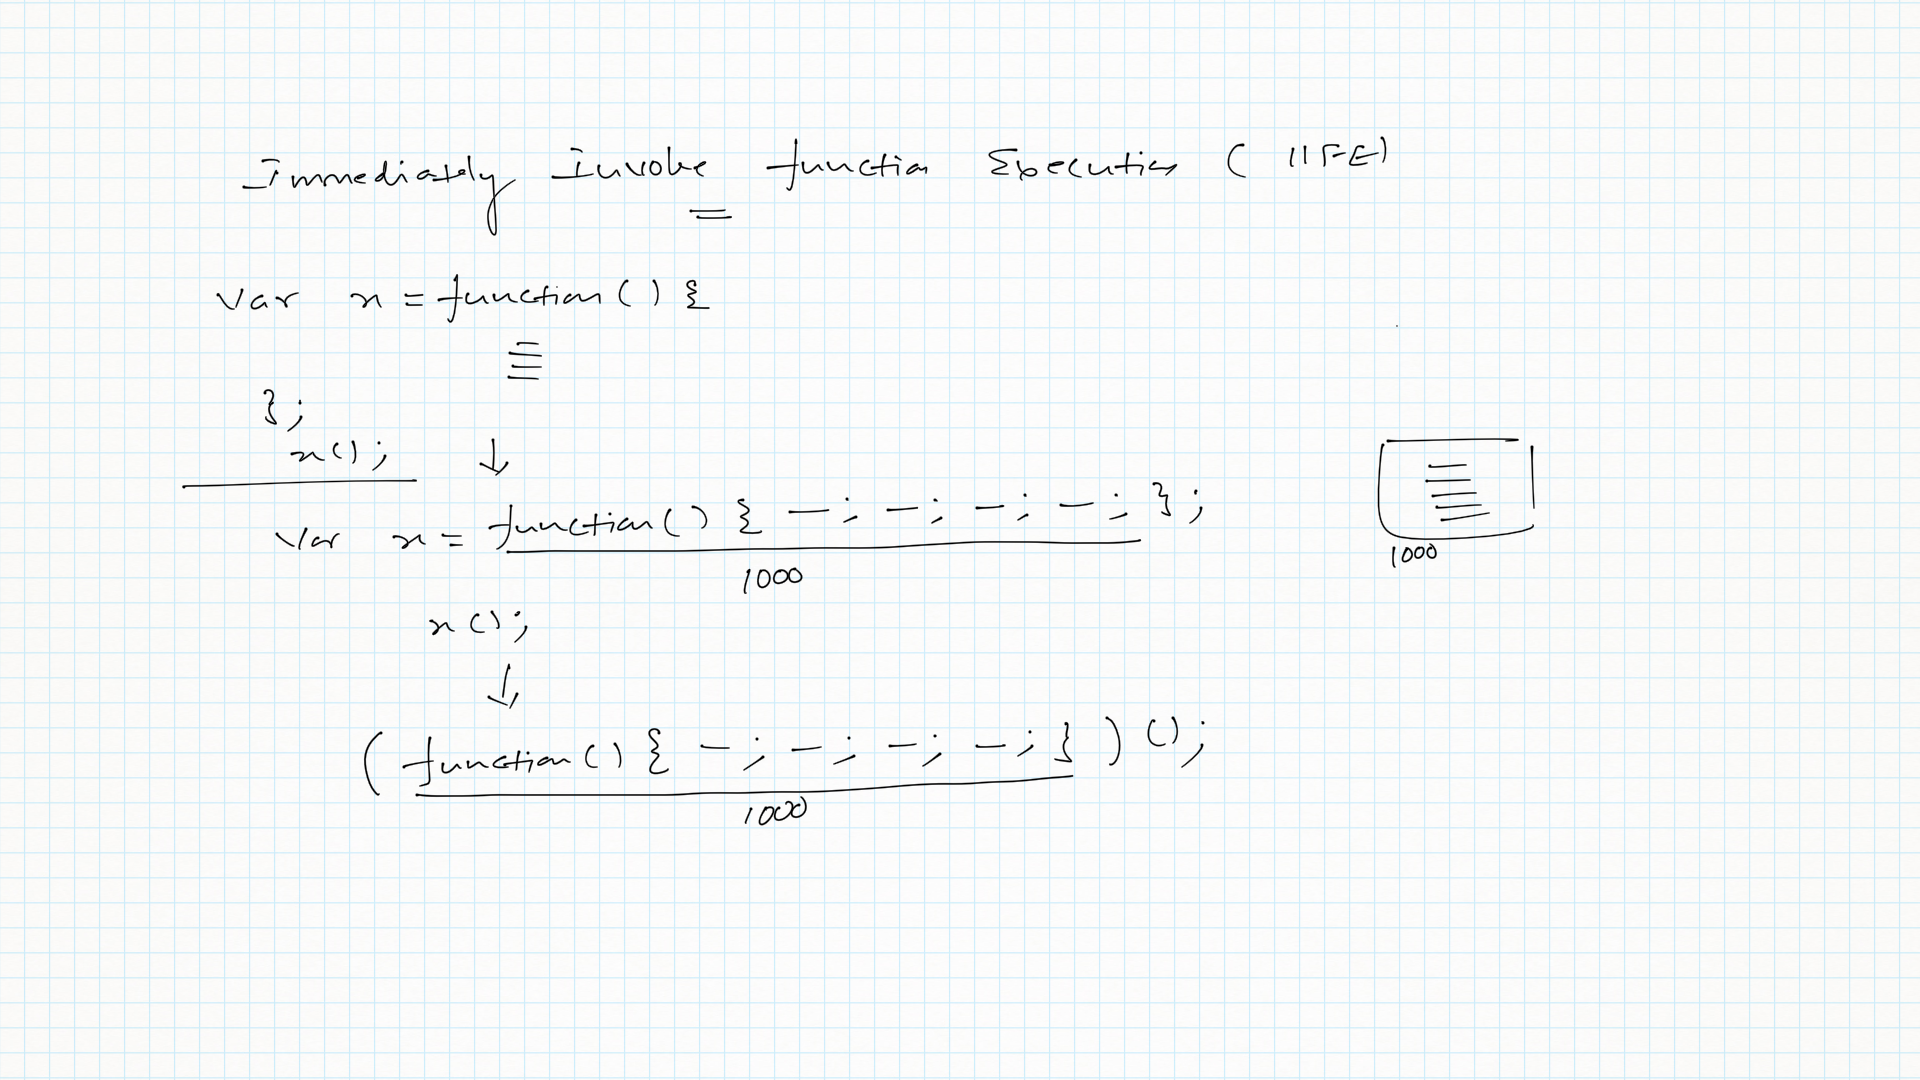 Immediately Invoke function Execution ( IIFE)
var x = function ( ) {
};
x( );
var x = function( ) { — ; — ; — ; — ; } ;
1000
1000
x ( );
( function ( ) { — ; — ; — ; — ; } ) ( ) ;
1000